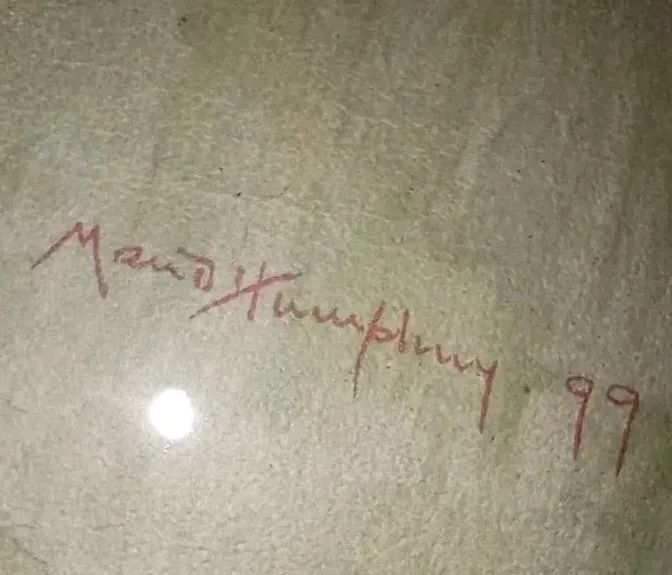 Maud Humphrey 99